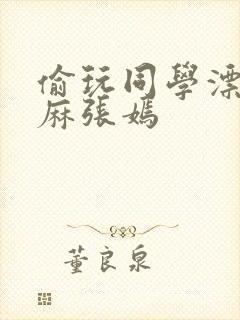 偷玩同學漂
麻張媽
董良泉